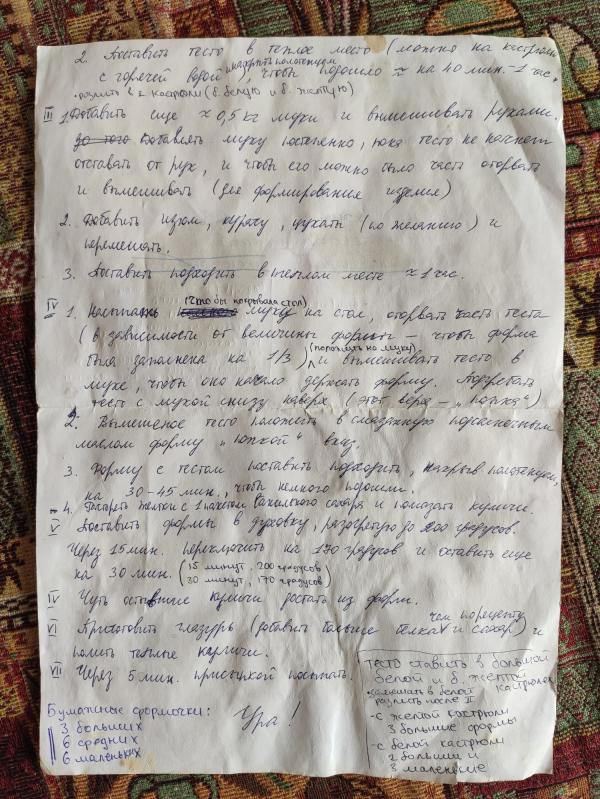 2. Поставить тесто в теплое место (можно на кастрюлю
с горячей водой, накрыть полотенцем, чтобы подошло ≈ на 40 мин.-1 час.
• разлить в 2 кастрюли (б. белую и б. желтую)
III 1. Добавить еще ≈ 0,5 кг муки и вымешивать руками.
Добавлять муку постепенно, пока тесто не начнет
отставать от рук, и чтобы его можно было часть оторвать
и вымешивать (для формирования изделия)
2. Добавить изюм, курагу, цукаты (по желанию) и
перемешать.
3. Поставить подходить в теплом месте ≈ 1 час.
(что бы покрывала стол)
IV 1. Насыпать муку на стол, оторвать часть теста
(в зависимости от величины формы – чтобы форма
была заполнена на 1/3) (положить на муку) и вымешивать тесто в
муке, чтобы оно начало держать форму. Подгребать
тесто с мукой снизу наверх (этот верх – „попка“)
2. Вымешеное тесто положить в смазанную подсолнечным
маслом форму „попкой“ вниз.
3. Форму с тестом поставить подходить, накрыв полотенцем,
на 30-45 мин., чтобы немного подошли.
4. желток с 1 пакетом ванильного сахара и помазать куличи.
V Поставить формы в духовку, разогретую до 200 градусов.
Через 15 мин. переключить на 170 градусов и оставить еще
на 30 мин. (15 минут, 200 градусов
30 минут, 170 градусов)
IV Чуть остывшие куличи достать из форм.
чем по рецепту
VI Приготовить глазурь (добавить больше белка и сахар) и
полить теплые куличи.
VII Через 5 мин. присыпкой посыпать.
Ура!
Бумажные формочки:
3 больших
6 средних
6 маленьких
тесто ставить в большой
белой и б. желтой
кастрюлях
• замешать в белой
разлить после II
- с желтой кастрюли
3 большие формы
- с белой кастрюли
2 больших и
3 маленькие